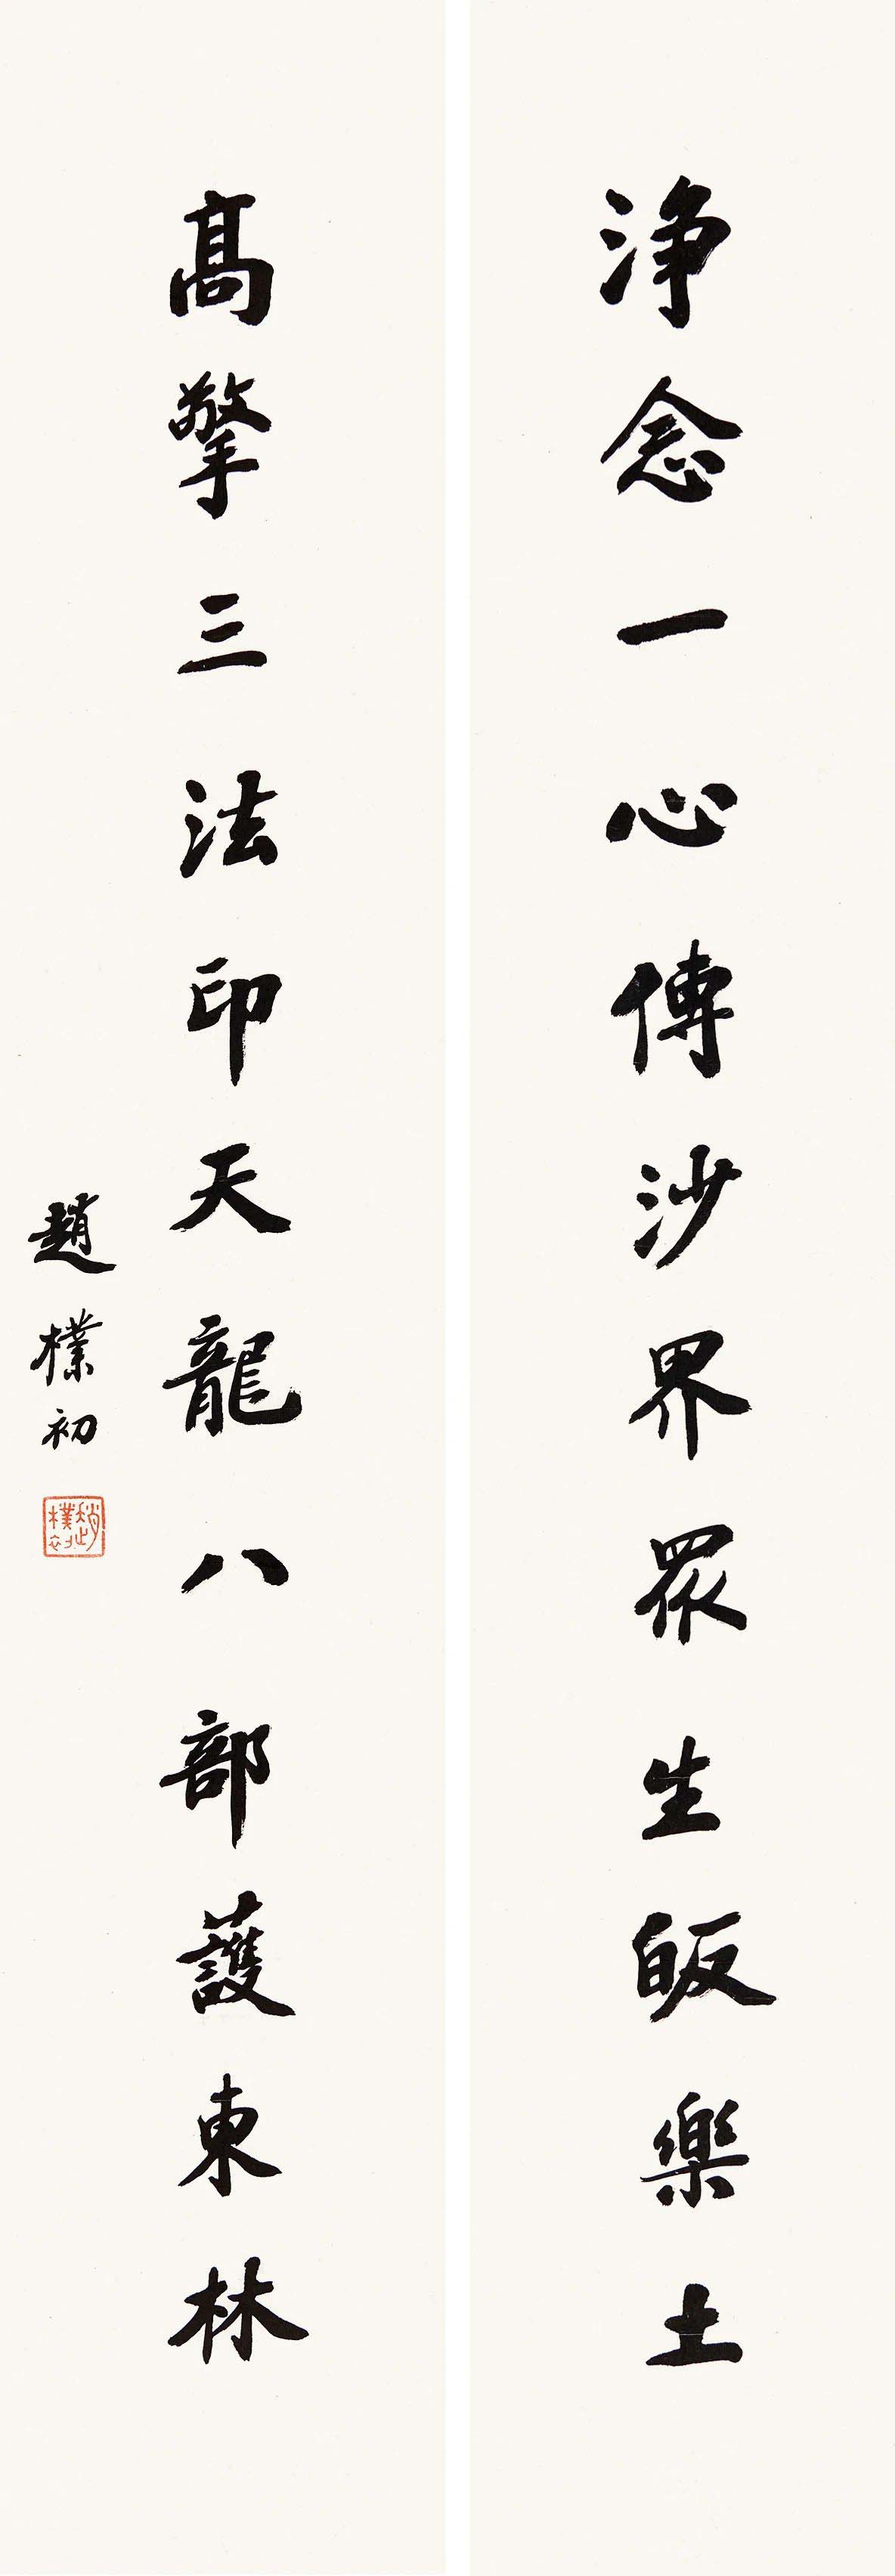 淨念一心傳沙界眾生皈樂土
高擎三法印天龍八部護東林
趙樸初
趙樸初